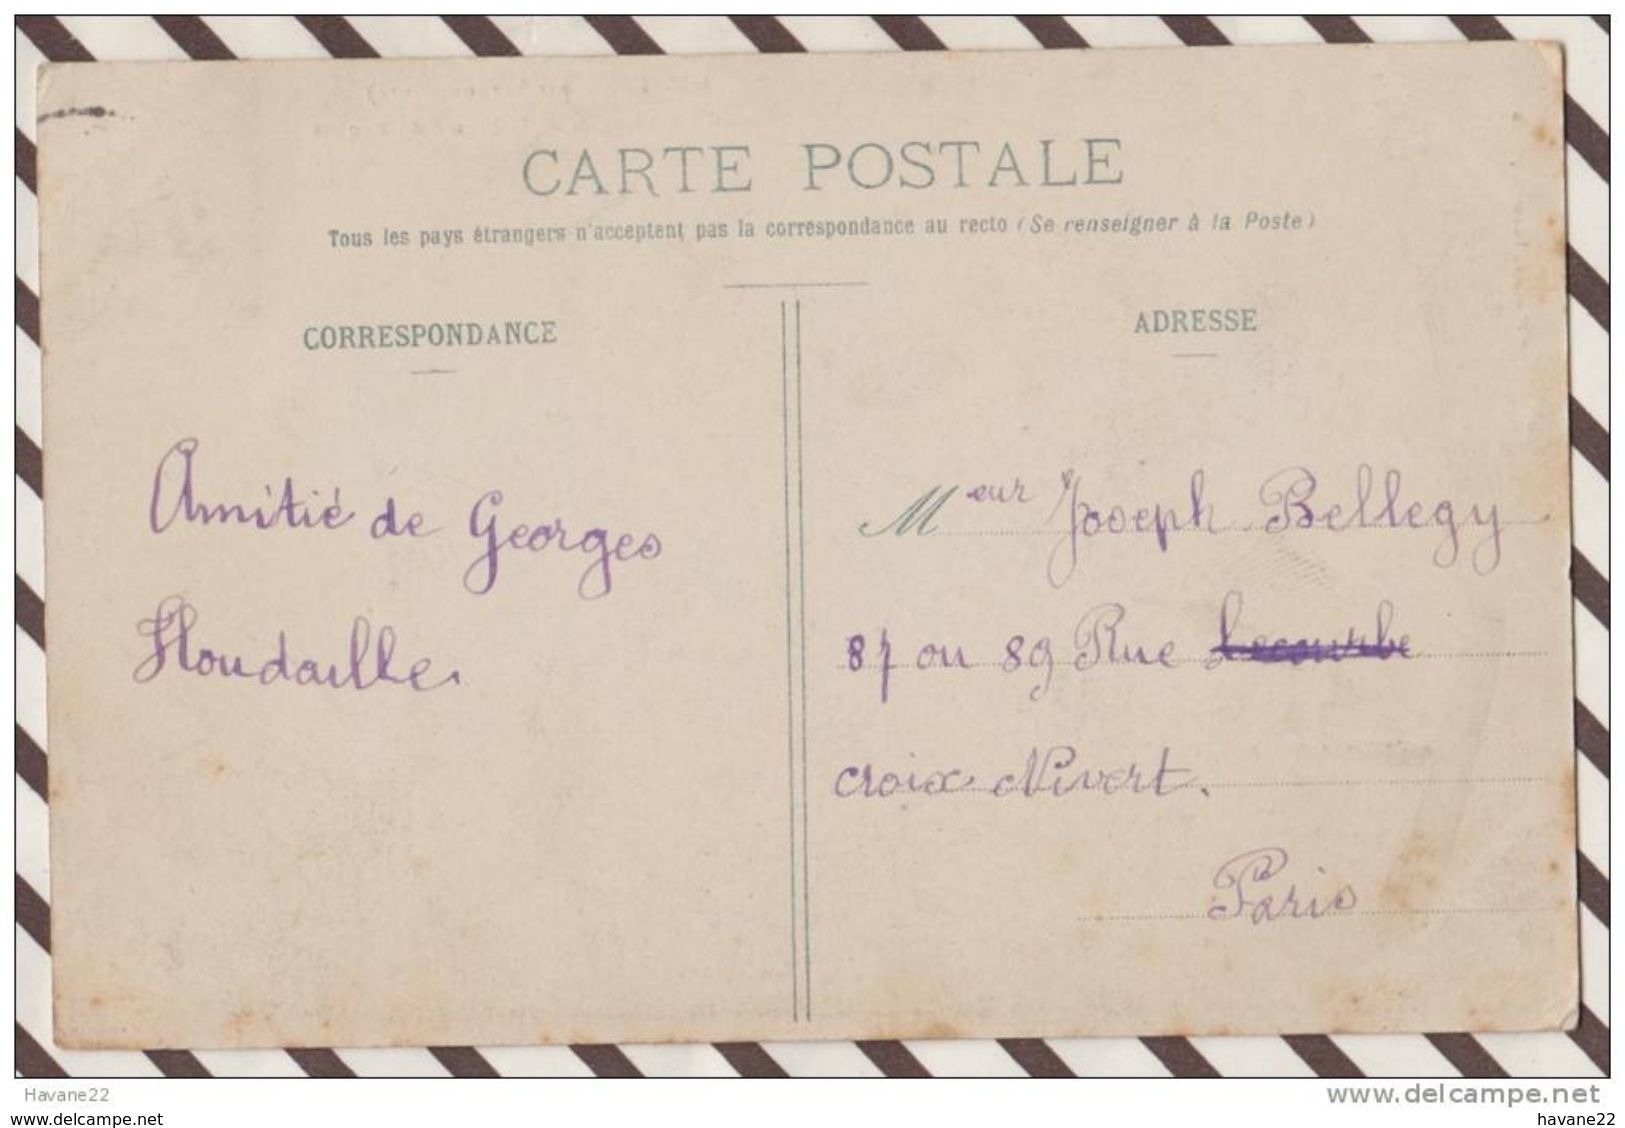 CARTE POSTALE
Tous les pays étrangers n'acceptent pas la correspondance au recto (Se renseigner à la Poste)
CORRESPONDANCE
Amitié de Georges
Houdaille.
ADRESSE
Meur Joseph Bellegy
87 ou 89 Rue Lecourbe
Croix Nivert.
Paris
Havane22
www.delcampe.net
havane22
havane22